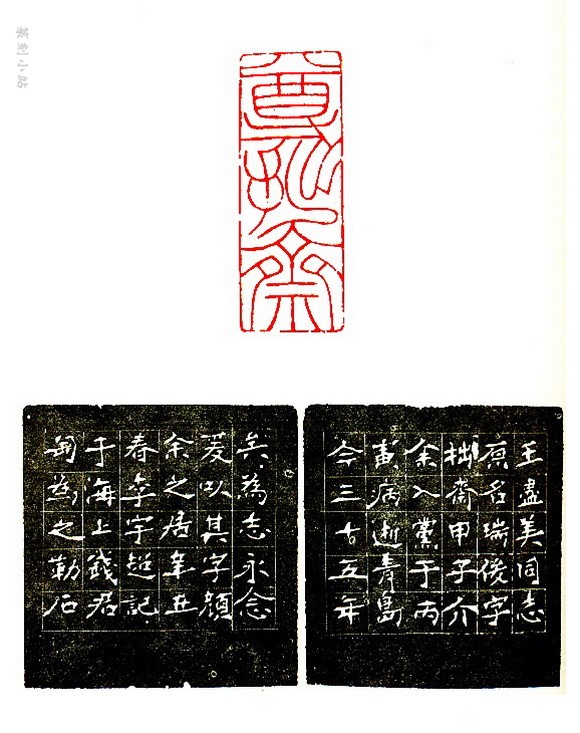 篆刻小站
尊拙齋
王盡美同志
原名瑞俊字
拙齋甲子介
余入黨于丙
寅病逝青島
今三十五年
矣為志永念
爰以其字顏
余之居辛丑
春李宇超記
于海上錢君
匋為之勒石